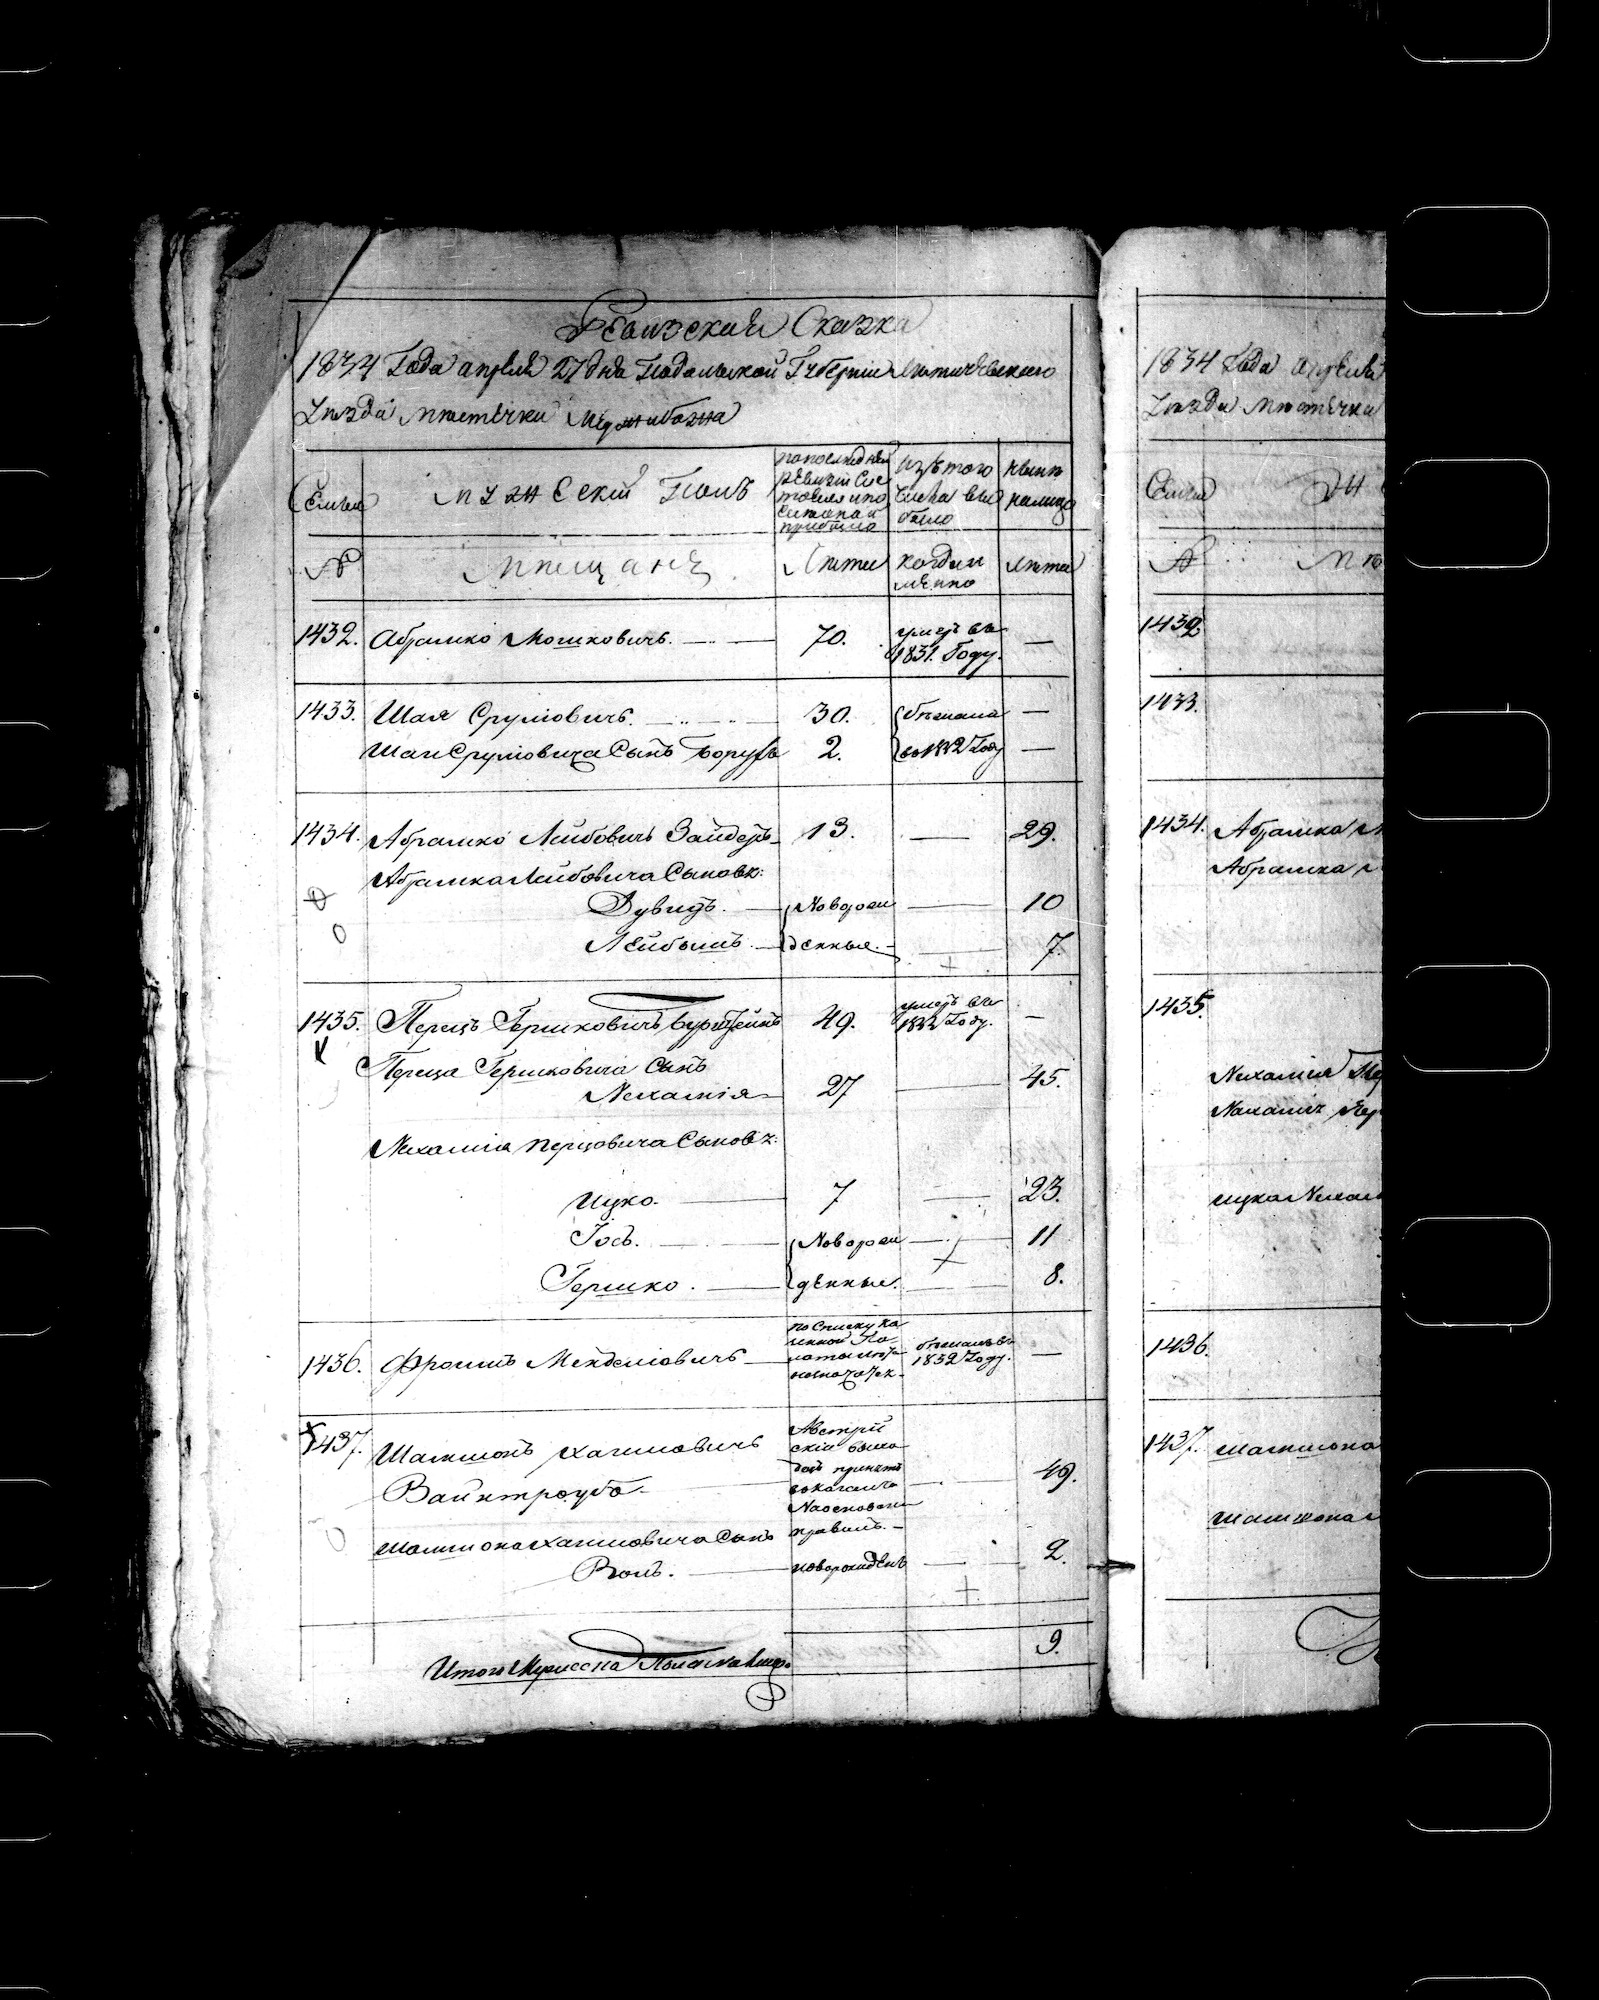 Ревизская Сказка
1834 Года апреля 27 дня Подольской Губернии Литичевского
Уезда местечка Меджибожа
Семьи
Мужеский Полъ
По последней ревизии состояло и после оной прибыло
Изъ того числа выбыло
Ныне на лицо
№
Мещане
Лета
Когда именно
Лета
1432. Абрамко Мошковичъ. — 70. умеръ въ —
1831. Году.
1433. Шая Сруловичъ. — 30. бежали —
Шаи Сруловича Сынъ Борухъ 2. въ 1832 Году —
1434. Абрамко Лейбовичъ Зайдеръ 13. — 29.
Абрамка Лейбовича Сыновья:
Дувидъ. — Новорож — 10
Лейбышъ. — денные. — 7.
1435. Перецъ Гершковичъ Бурштейнъ 49. умеръ въ 1832 Году. —
Переца Гершковича Сынъ
Нехамія 27 — 45.
Нехамія Перцовича Сыновья:
Ицко. — 7 — 23.
Іось. — Новорож — 11
Гершко. — денные. — 8.
1436. Фроимъ Менделіовичъ — по списку ка
зенной Па
латы лета
не значатся.
бежалъ въ
1832 Году. —
1437. Шамшонъ Хаимовичъ
Вайнтроубъ — 49.
Австрій
скій выхо
децъ принятъ
на основаніи
правилъ. —
Шамшона Хаимовича Сынъ
Волъ. — новорожденъ — 2.
Итого Мужеска Пола на лицо 9.
1834 Года апреля
Уезда местечка
Семьи
№
1432.
1433.
1434. Абрамка
Абрамка
1435.
Нехаміи Пер
Нехаміи Пер
Ицка Нехам
1436.
1437. Шамшона
Шамшона